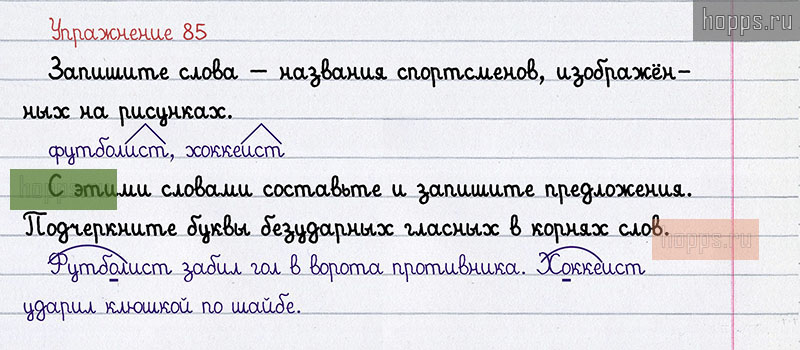 hopps.ru
Упражнение 85
Запишите слова – названия спортсменов, изображён-
ных на рисунках.
футболист, хоккеист
hopps.ru
С этими словами составьте и запишите предложения.
Подчеркните буквы безударных гласных в корнях слов.
hopps.ru
Футболист забил гол в ворота противника. Хоккеист
ударил клюшкой по шайбе.